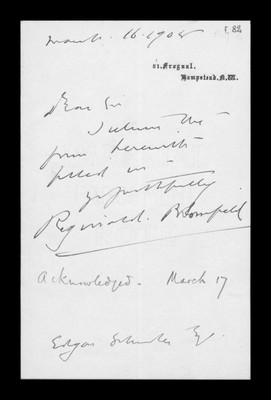 f. 82
March. 16. 1908
51. Frognal.
Hampstead. N.W.
Dear Sir
I return the
form herewith
filled in -
yrs faithfully
Reginald. Blomfield
Acknowledged. March 17
Edgar Schuster Esq.